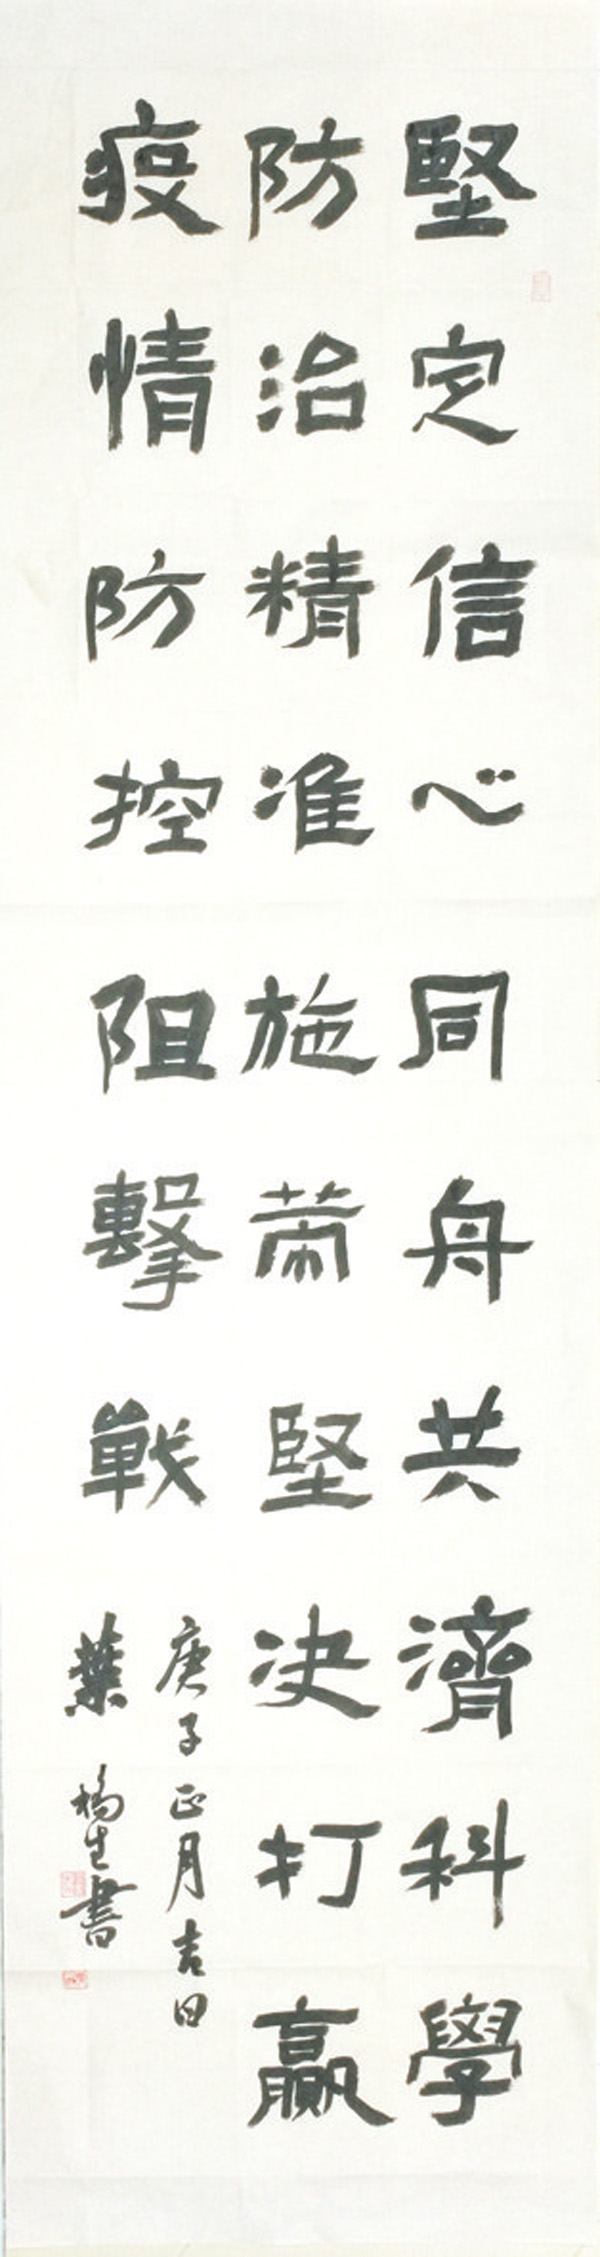 堅定信心同舟共濟科學
防治精准施策堅決打贏
疫情防控阻擊戦
庚子正月吉日
葉生書